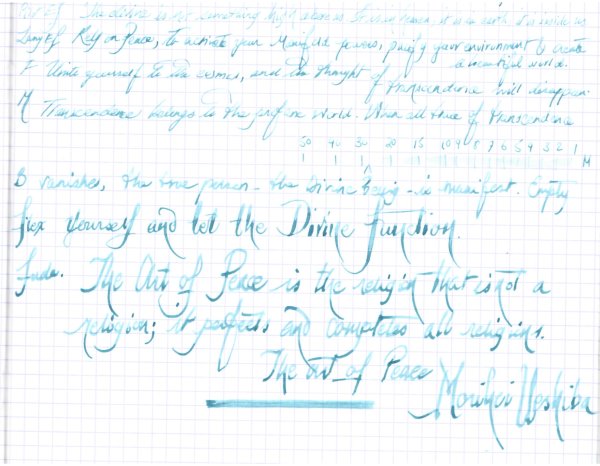 The divine is not something high above us. It is in heaven, it is in earth, it is inside us
Rely on Peace, to activate your Manifold powers, pacify your environment & create
a beautiful world.
F Unite yourself to the cosmos, and the thought of transcendence will disappear.
M Transcendence belongs to the profane world. When all trace of transcendence
50 40 30 20 15 10 9 8 7 6 5 4 3 2 1
M
B vanishes, the true person - the Divine being - is manifest. Empty,
flex yourself and let the Divine Function.
fude. The Art of Peace is the religion that is not a
religion; it perfects and completes all religions.
The art of Peace
Morihei Ueshiba